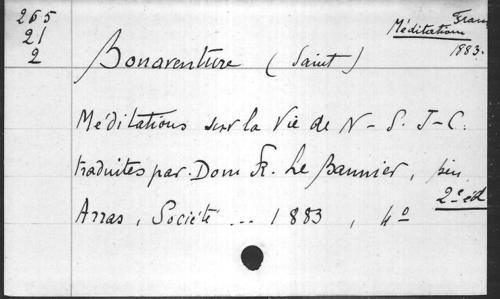 265
21
2
Méditations Fran
1883.
Bonaventure (Saint)
Méditations sur la Vie de N-S. J-C.
traduites par Dom F. Le Bannier,
2e éd
Arras, Société ... 1883, 4o